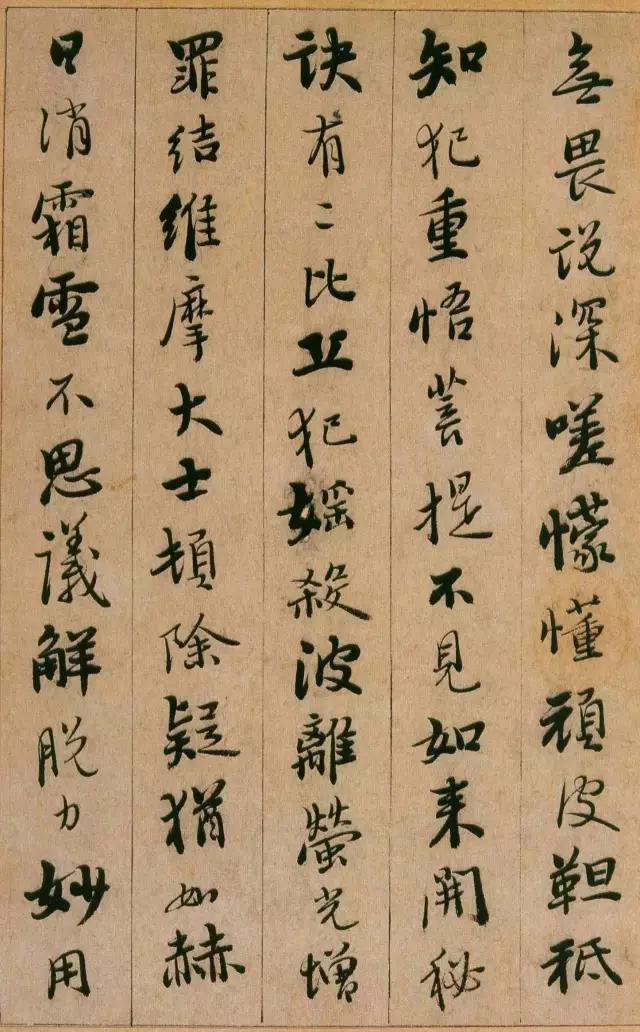 無畏说深嗟懞懂頑皮靼秖
知犯重悟菩提不見如来開秘
诀有二比丘犯婬殺波離螢光增
罪结維摩大士頓除疑猶如赫
日消霜雪不思議解脱力妙用